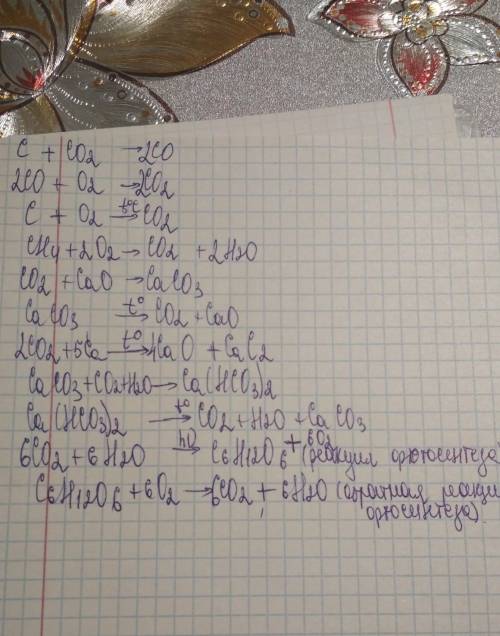 C + CO2 → 2CO
2CO + O2 → 2CO2
C + O2 t°C→ CO2
CH4 + 2O2 → CO2 + 2H2O
CO2 + CaO → CaCO3
CaCO3 t°→ CO2 + CaO
2CO2 + 5Ca t°→ 4CaO + CaC2
CaCO3 + CO2 + H2O → Ca(HCO3)2
Ca(HCO3)2 t°→ CO2 + H2O + CaCO3
6CO2 + 6H2O hυ→ C6H12O6 + 6O2 (реакция фотосинтеза)
C6H12O6 + 6O2 → 6CO2 + 6H2O (обратная реакци
фотосинтеза)